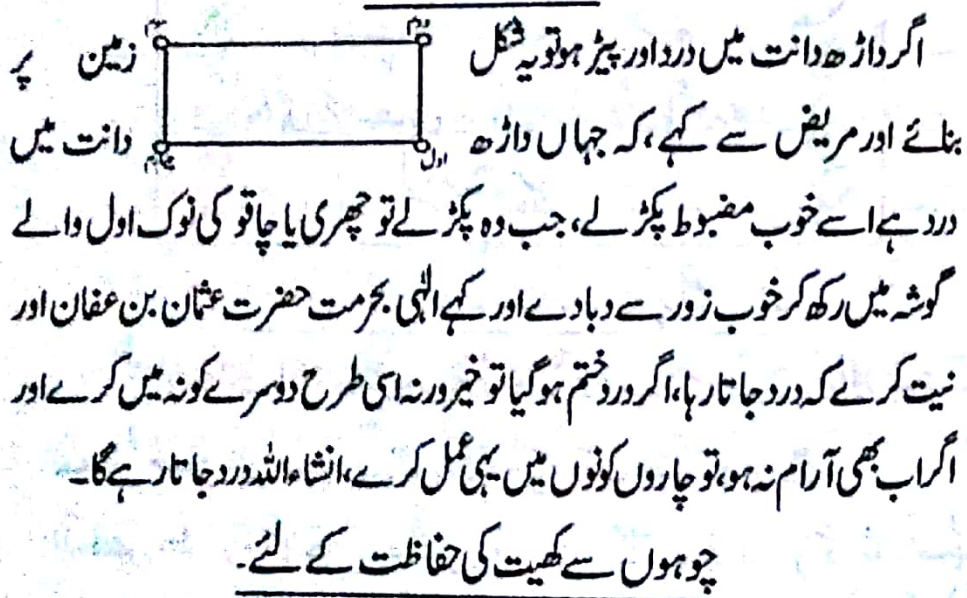 اگر داڑھ دانت میں درد اور پیڑ ہو تو یہ شکل دوم سوم زمین پر
بنائے اور مریض سے کہے، کہ جہاں داڑھ اول چہارم دانت میں
درد ہے اسے خوب مضبوط پکڑ لے، جب وہ پکڑ لے تو چھری یا چاقو کی نوک اول والے
گوشہ میں رکھ کر خوب زور سے دبادے اور کہے الٰہی بحرمت حضرت عثمان بن عفان اور
نیت کرے کہ درد جاتا رہا، اگر درد ختم ہو گیا تو خیر ورنہ اسی طرح دوسرے کونہ میں کرے اور
اگر اب بھی آرام نہ ہو، تو چاروں کونوں میں یہی عمل کرے، انشاء اللہ درد جاتا رہے گا۔
چوہوں سے کھیت کی حفاظت کے لئے۔